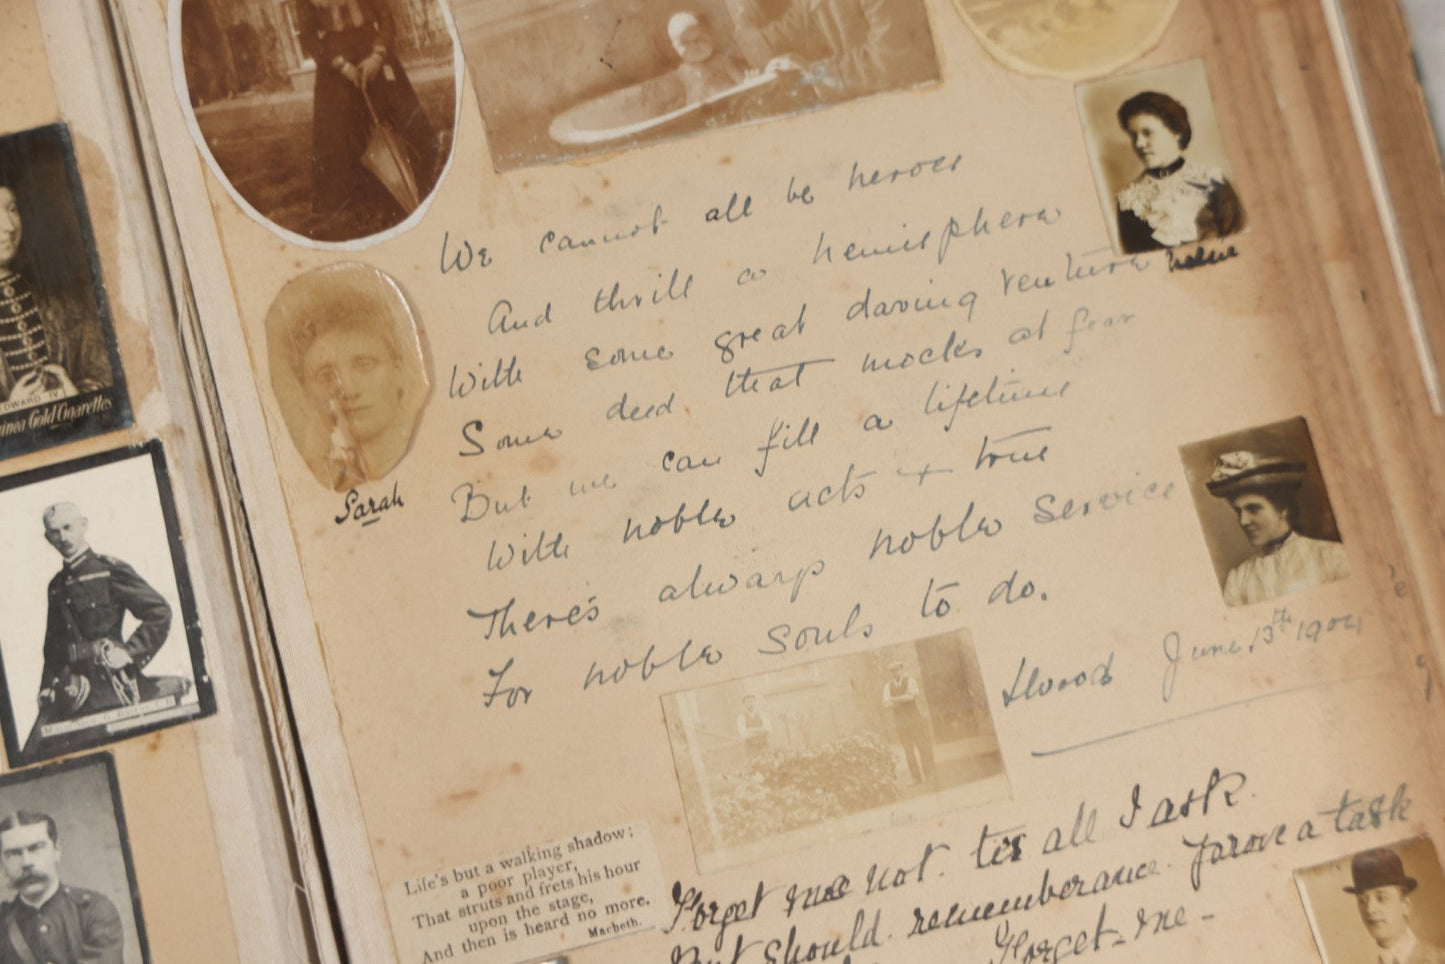 We cannot all be heroes
And thrill a hemisphere
With some great daring venture
Some deed that mocks at fear
But we can fill a lifetime
With noble acts + true
There's always noble service
For noble souls to do.
June, 13th 1904
Sarah
Nellie
EDWARD IV
Guinea Gold Cigarettes
Life's but a walking shadow;
a poor player,
That struts and frets his hour
upon the stage,
And then is heard no more.
Macbeth.
Forget me not. tis all I ask.
But should. rememberance. prove a task
Forget-me-